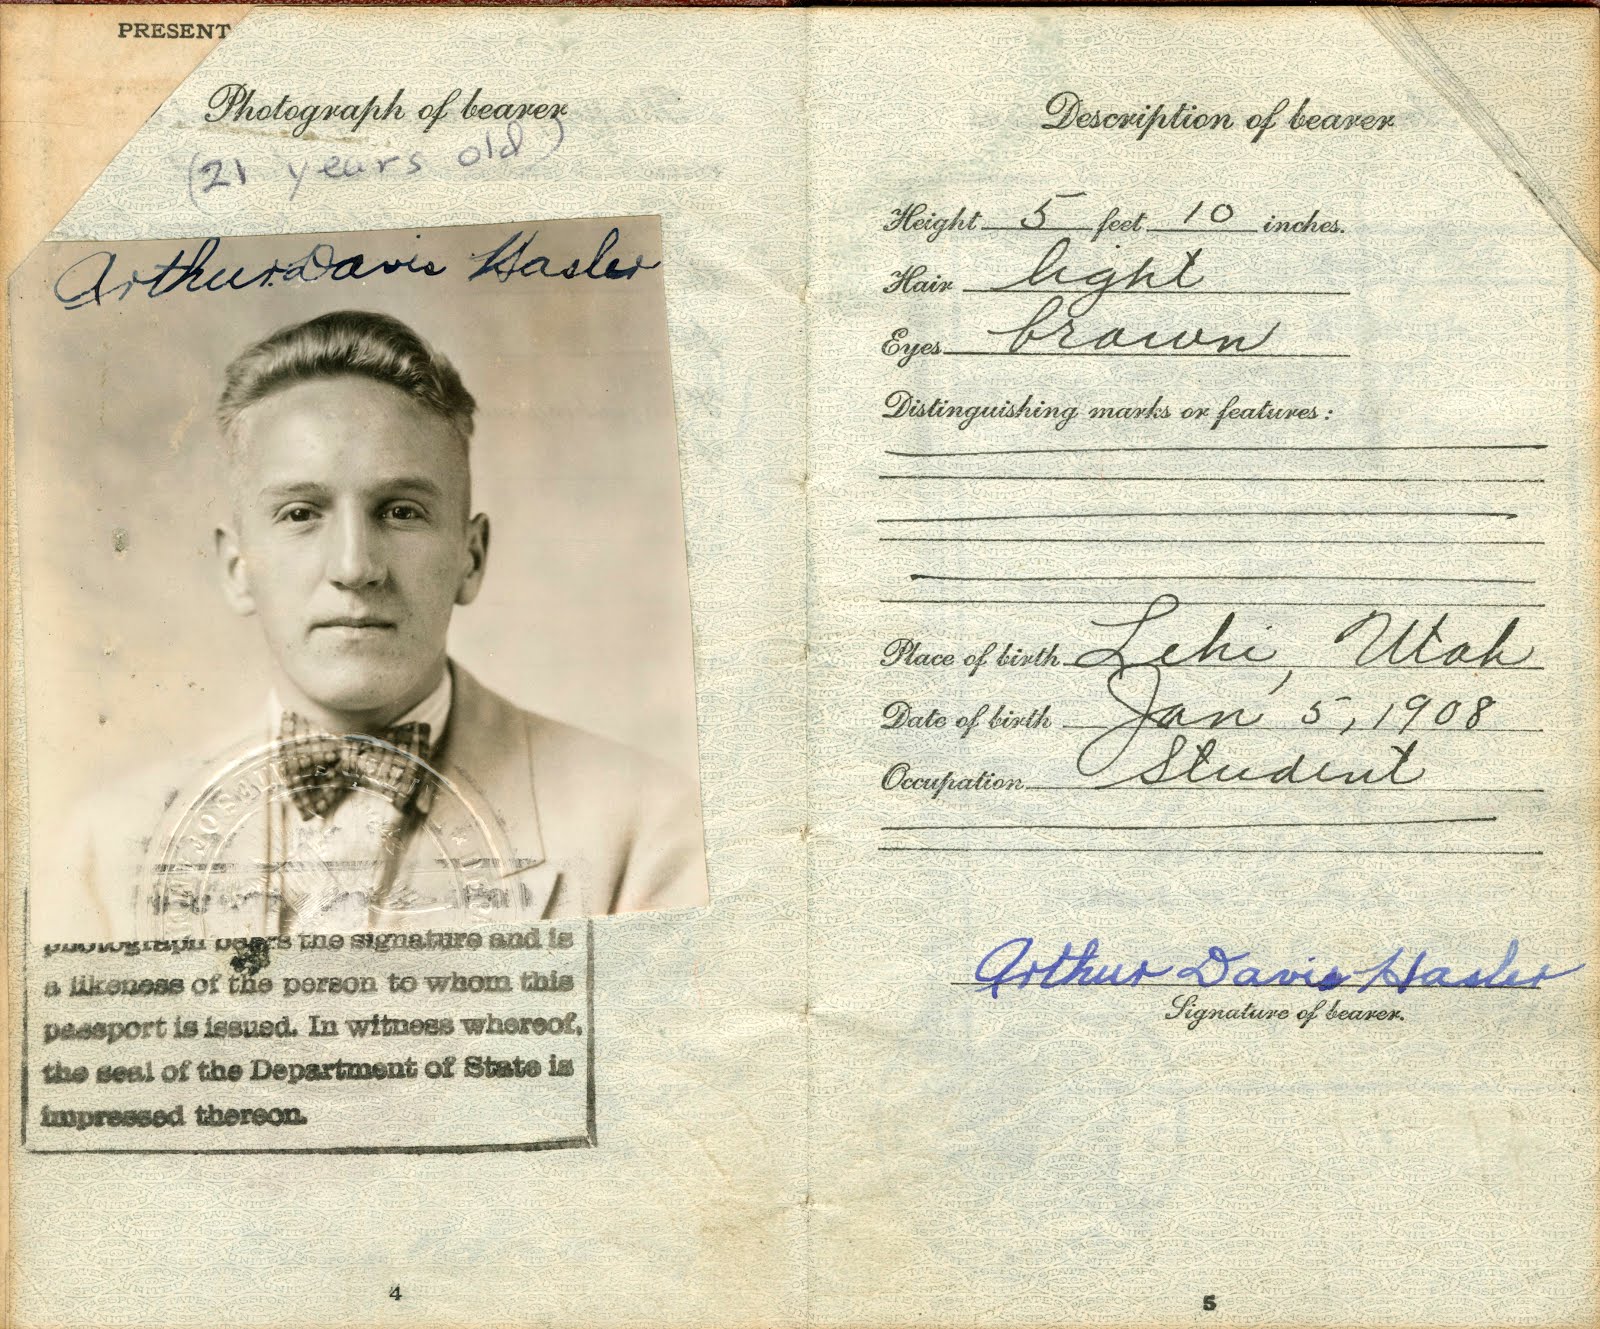 PRESENT
Photograph of bearer
(21 years old)
Arthur Davis Hasler
photograph bears the signature and is
a likeness of the person to whom this
passport is issued. In witness whereof,
the seal of the Department of State is
impressed thereon.
4
Description of bearer
Height 5 feet 10 inches.
Hair light
Eyes brown
Distinguishing marks or features:
Place of birth Lehi, Utah
Date of birth Jan 5, 1908
Occupation Student
Arthur Davis Hasler
Signature of bearer.
5